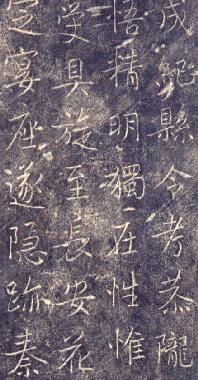 成紀縣令考恭隴
悟精明獨在性惟
受具旋至長安花
定宴座遂隐跡秦